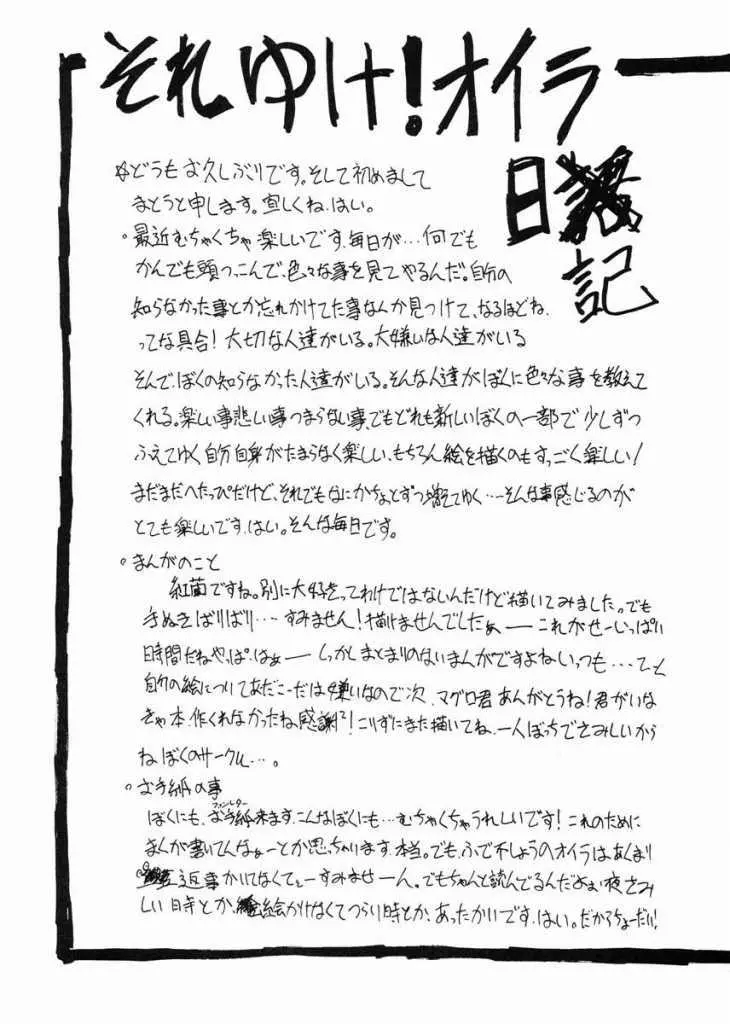 それゆけ！オイラ
日記
☆どうもお久しぶりです。そして初めまして
まとうと申します。宜しくね。はい。
。最近むちゃくちゃ楽しいです、毎日が…何でも
かんでも頭つっこんで、色々な事を見てやるんだ。自分の
知らなかった事とか忘れかけてた事なんか見つけて、なるほどね、
ってな具合！大切な人達がいる。大嫌いな人達がいる
そんで、ぼくの知らなかった人達がいる。そんな人達がぼくに色々な事を教えて
くれる。楽しい事悲しい事つまらない事、でもどれも新しいぼくの一部で少しずつ
ふえてゆく自分自身がたまらなく楽しい、もちろん絵を描くのもすっごく楽しい！
まだまだへたっぴだけど、それでもなにかちょっとずつ増えてゆく…そんな事感じるのが
とても楽しいです、はい。そんな毎日です。
。まんがのこと
紅蘭ですね。別に大好きってわけではないんだけど描いてみました。でも
手ぬきばりばり…すみません！描けませんでしたぁーこれがせーいっぱい
時間だねやっぱ、はぁーしっかしまとまりのないまんがですよねいっつも…てっと
自分の絵についてあだこーだは嫌いなので次、マグロ君あんがとうね！君がいな
きゃ本、作くれなかったね感謝！こりずにまた描いてね、一人ぼっちでさみしいから
ねぼくのサークル…。
。お手紙の事
ぼくにも、お手紙来ます、こんなぼくにも…むちゃくちゃうれしいです！これのために
ファンレター
まんが書いてんなぁーとか思っちゃいます、本当。でも、ふでぶしょうのオイラはあんまり
返事かいてなくてぇーすみませーん。でもちゃんと読んでるんだよぉ夜さみ
しい時とか、絵かけなくてつらい時とか、あったかいです、はい。だからちょーだい！